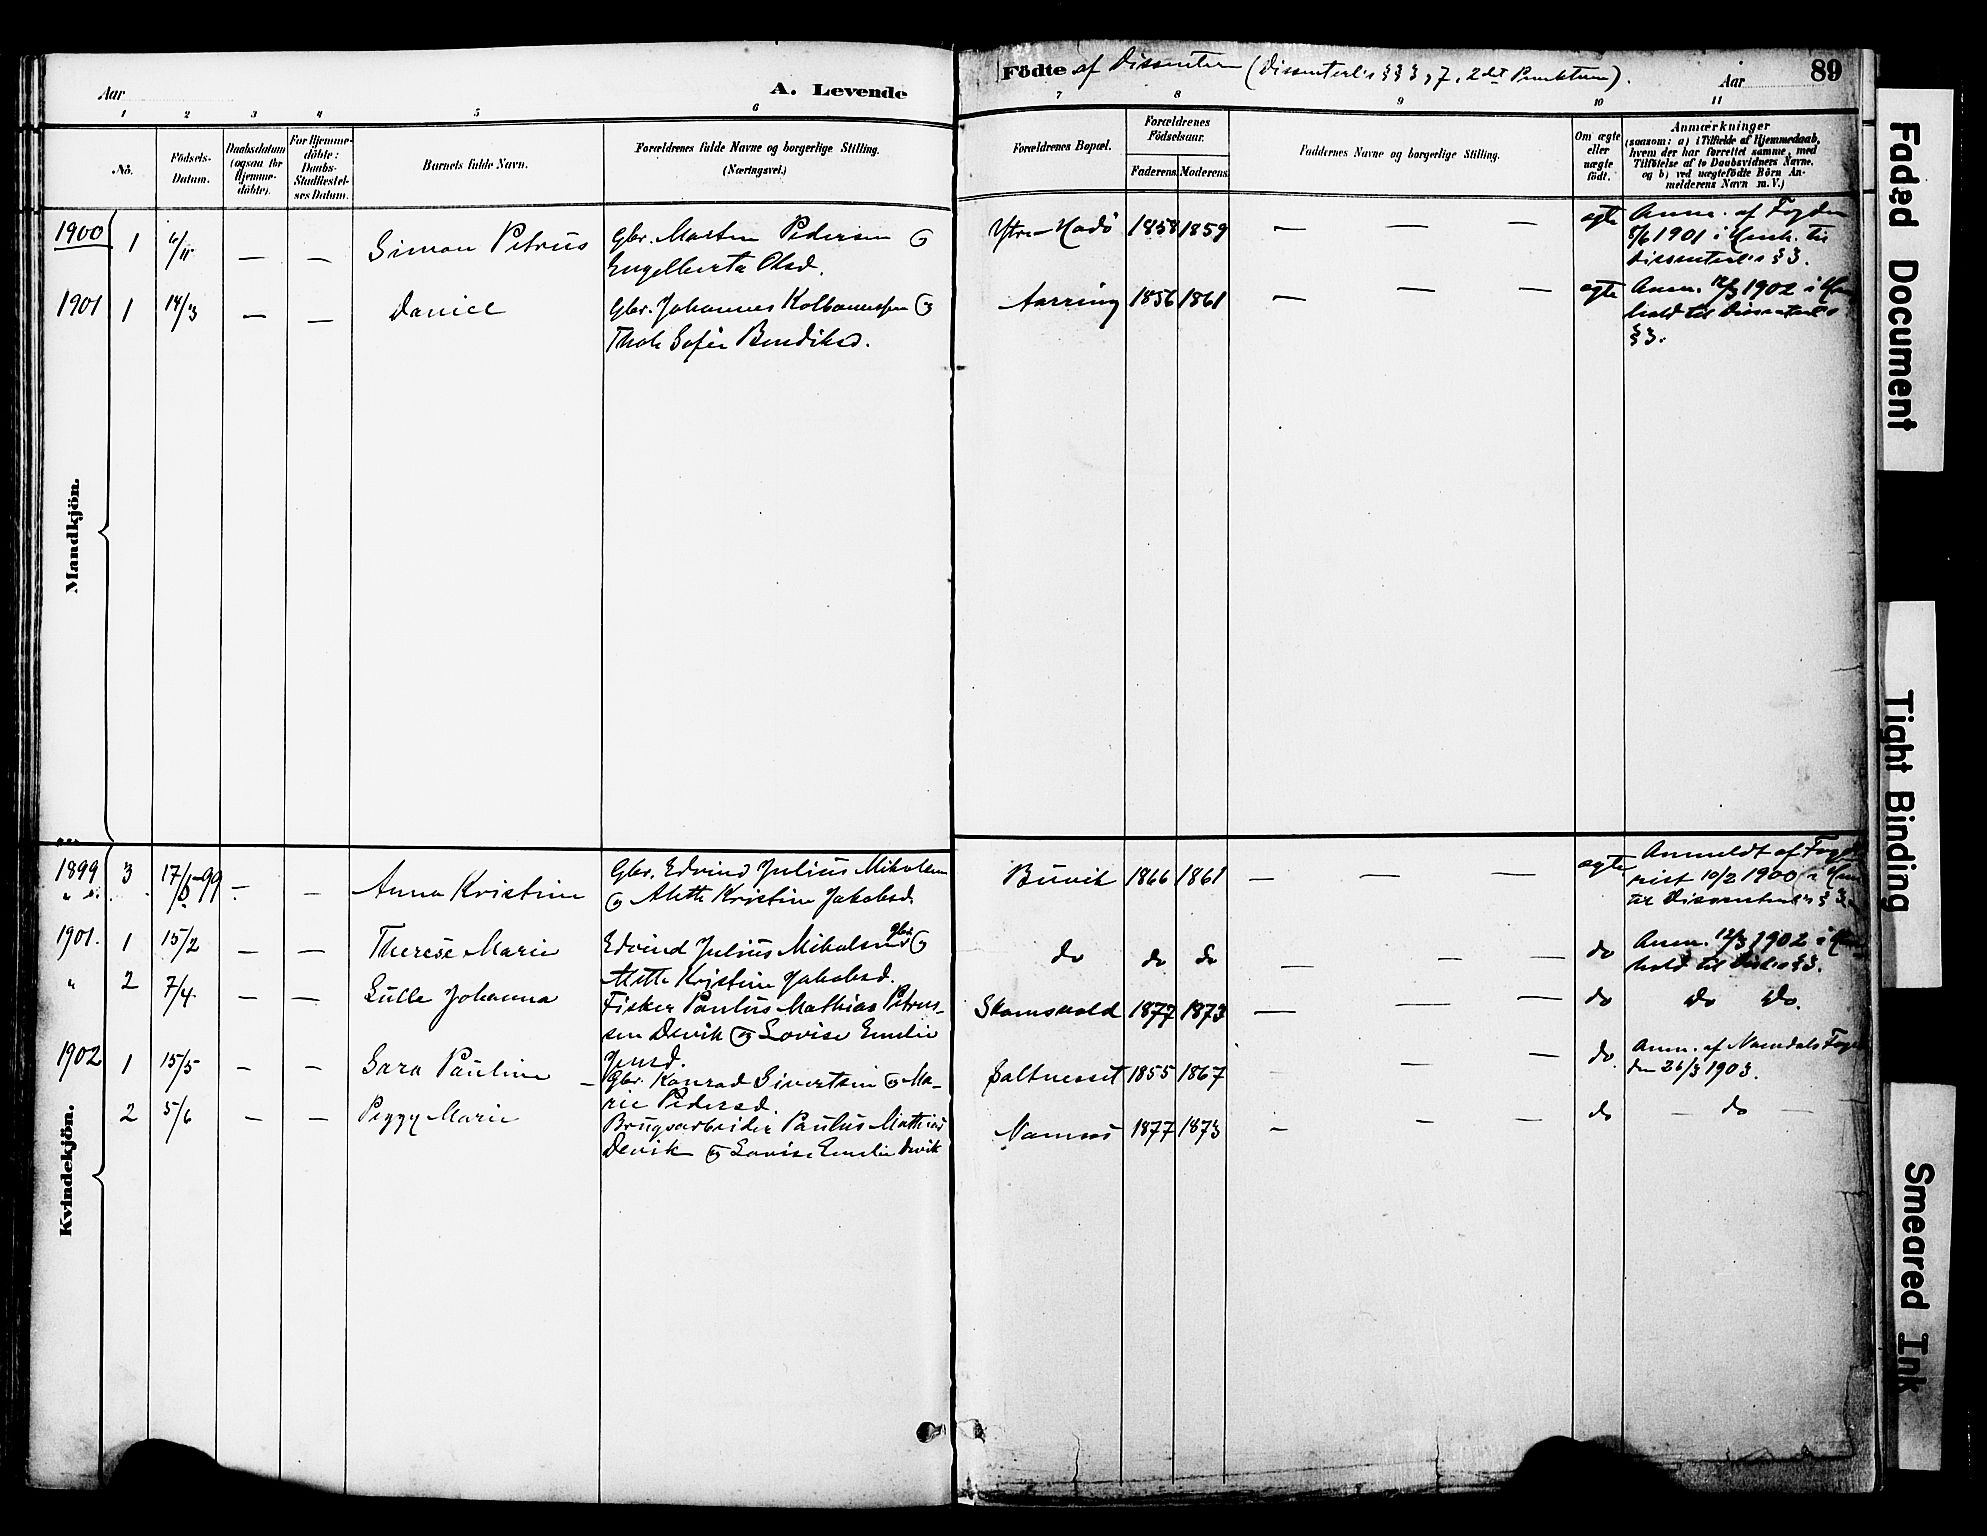 Aar
A. Levende
Födte af Dissentere (Dissenterl's §§ 3, 7, 2det Punktum).
Aar
89
1 2 3 4 5 6 7 8 9 10 11
No.
Födsels-
Datum.
Daabsdatum
(ogsaa for
Hjemme-
döbte).
For Hjemme-
döbte:
Daabs-
Stadfæstel-
ses Datum.
Barnets fulde Navn.
Forældrenes fulde Navne og borgerlige Stilling.
(Næringsvei.)
Forældrenes Bopæl.
Forældrenes
Födselsaar.
Faderens. Moderens.
Faddernes Navne og borgerlige Stilling.
Om ægte
eller
uægte
födt.
Anmærkninger
(saasom: a) i Tilfælde af Hjemmedaab,
hvem der har forrettet samme, med
Tilföielse af to Daabsvidners Navne.
og b) ved uægtefödte Börn An-
melderens Navn m. V.)
Mandkjön.
1900 1 6/11 — — Simon Petrus
Gbr. Morten Pedersen og
Engelberta Olsd.
Ytre-Hadö 1858 1859 — — — ægte
Anm. af Fogden
5/6 1901 i Henh. til
Dissenterl's § 3.
1901 1 14/3 — — Daniel
Gbr. Johannes Kolbannussen og
Thale Sofie Bendiksd.
Aarring 1856 1861 — — — ægte
Anm. 12/3 1902 i Hen
hold til Dissenterl's
§ 3.
Kvindekjön.
1899 3 17/5-99 — — Anna Kristine
Gbr. Edvind Julius Mikalsen
og Alette Kristine Jakobsd.
Buvik 1866 1861 — — — ægte
Anmeldt af Fogd
10/2 1900 i Hen
til Dissenterl's § 3
1901. 1 15/2 — — Therese Marie
Edvind Julius Mikalsen gbr. og
Alette Kristine Jakobsd.
do do do — — — do
Anm. 12/3 1902 i Hen
hold til Disl's § 3.
" 2 7/4 — — Sulla Johanna
Fisker Paulus Mathias Petrus-
sen Devik og Lovise Emilie
Jensd.
Skomsvold 1877 1873 — — — do
do do.
1902 1 15/5 — — Sara Pauline —
Gbr. Konrad Sivertsen og Ma-
rie Pedersd.
Saltnesset 1855 1867 — — do
Anm. af Namdals Fogd
den 26/3 1903.
2 5/6 — — Peggy Marie
Brugsarbeider Paulus Mathias
Devik og Lovise Emilie Devik
Namsos 1877 1873 — — — do
— do —
Faded Document
Tight Binding
Smeared Ink